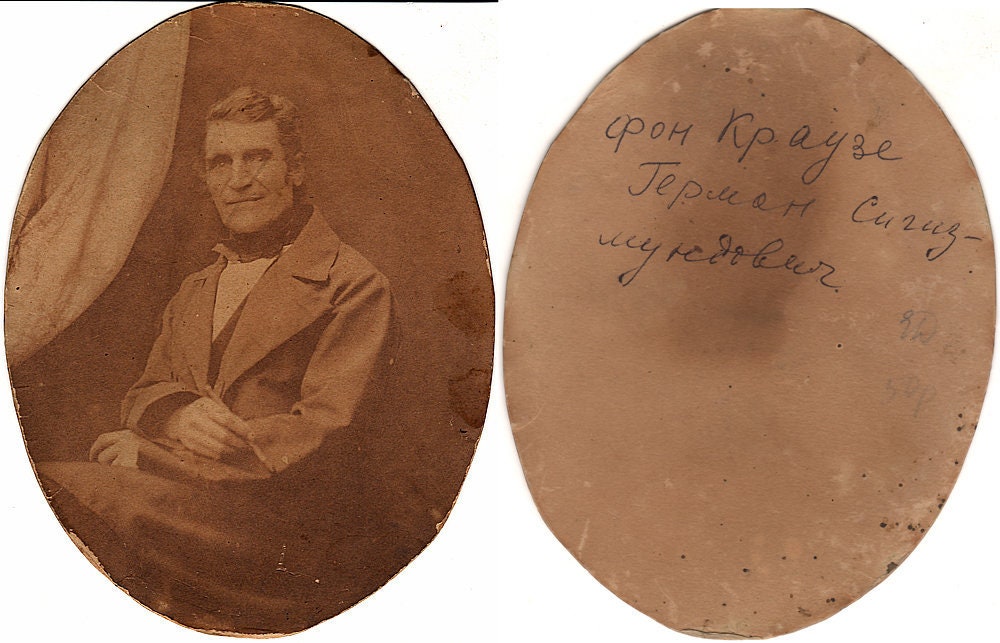 фон Краузе
Герман Сигиз-
мундович